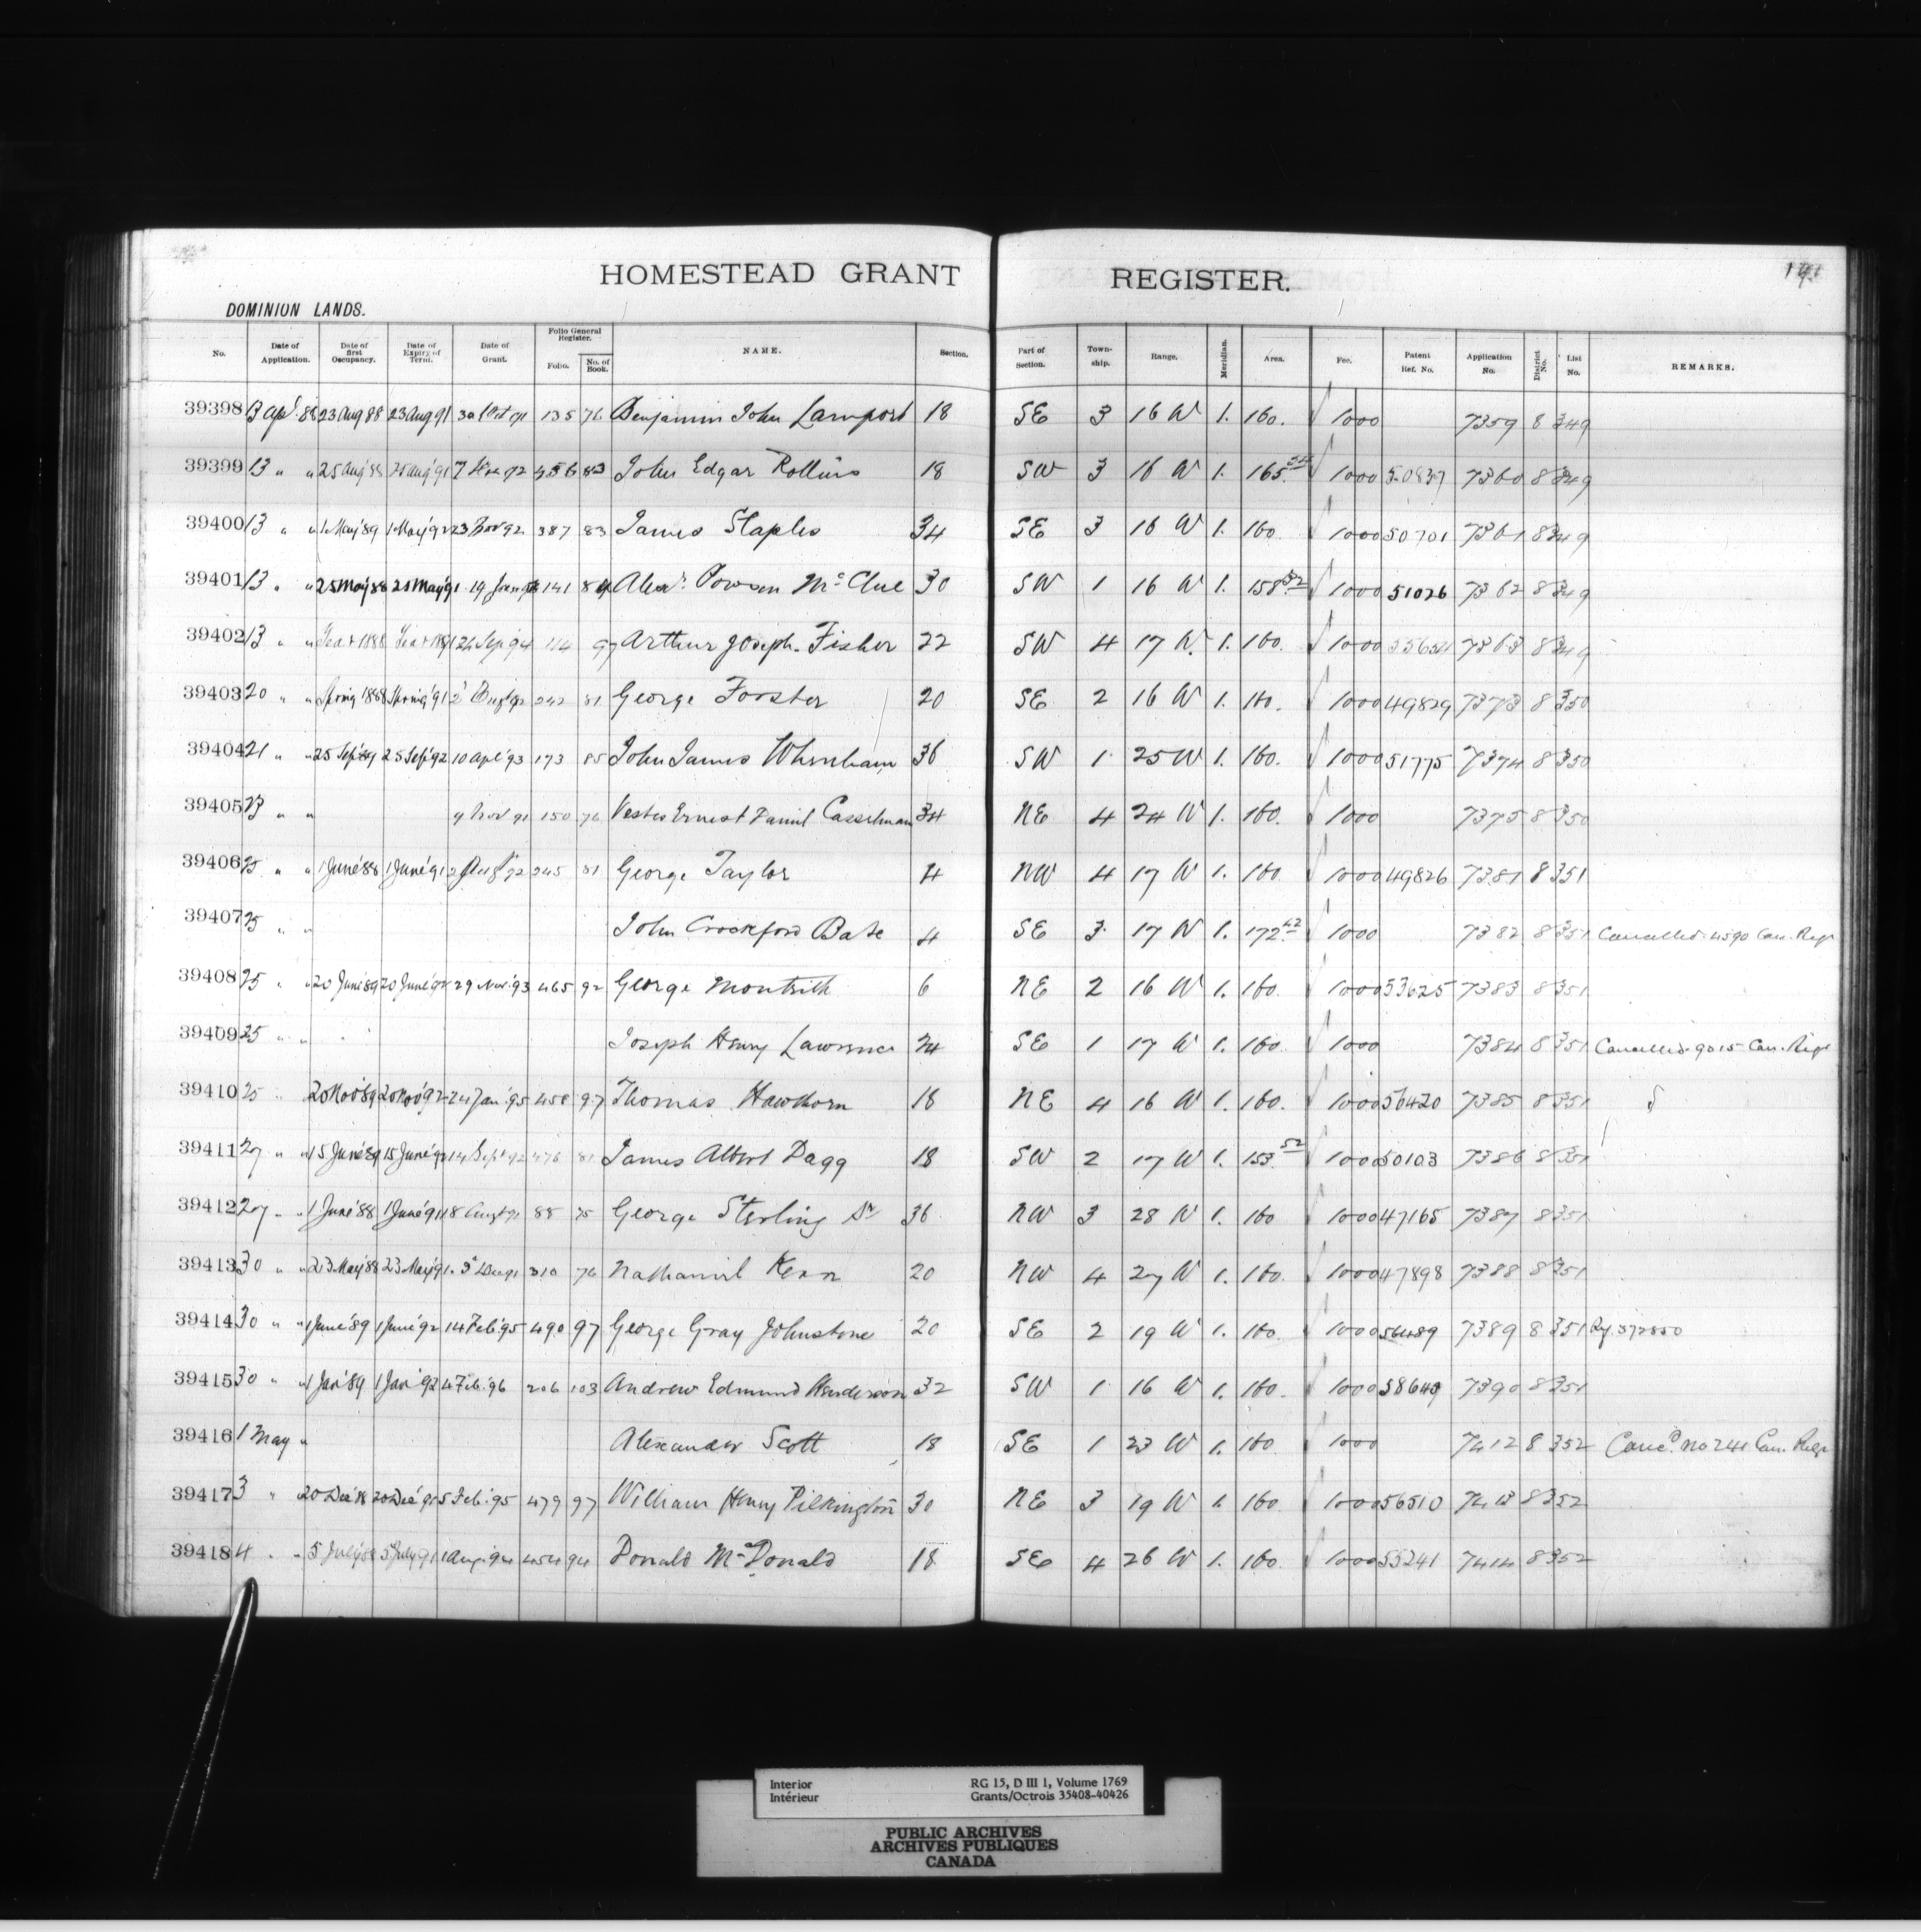 HOMESTEAD GRANT REGISTER. 191
DOMINION LANDS.
No. Date of Application. Date of first Occupancy. Date of Expiry of Term. Date of Grant. Folio General Register. Folio. No. of Book. NAME. Section. Part of Section. Township. Range. Meridian. Area. Fee. Patent Ref. No. Application No. District No. List No. REMARKS.
39398 13 apl. 88 23 Aug 88 23 Aug 91 30 Oct 91 135 76 Benjamin John Lamport 18 SE 3 16 W 1. 160. 1000 7359 8 349
39399 13 " " 25 Aug 88 25 Aug 91 92 456 83 John Edgar Rollins 18 SW 3 16 W 1. 165.54 1000 50837 7360 8 349
39400 13 " " 1 May 89 1 May 92 23 Nov 92 387 83 James Staples 34 SE 3 16 W 1. 160 1000 50701 7361 8 349
39401 13 " " 25 May 88 25 May 91 19 141 84 Alexr. McClue 30 SW 1 16 W 1. 158.52 1000 51026 7362 8 349
39402 13 " " 1888 1891 24 Sep 94 114 97 Arthur Joseph Fisher 22 SW 4 17 W. 1. 160. 1000 55634 7363 8 349
39403 20 " " Spring 1888 Spring '91 2 Augt 92 242 81 George Forster 20 SE 2 16 W 1. 160. 1000 49829 7373 8 350
39404 21 " " 25 Sep '89 25 Sep '92 10 Apl '93 173 85 John James Whenham 36 SW 1 25 W 1. 160. 1000 51775 7374 8 350
39405 23 " " 9 Nov 91 150 76 Vestes Ernest Daniel Casselman 34 NE 4 24 W 1. 160. 1000 7375 8 350
39406 25 " " 1 June '88 1 June '91 2 Augt 92 245 81 George Taylor 4 NW 4 17 W 1. 160 1000 49826 7381 8 351
39407 25 " " John Crockford Bate 4 SE 3 17 W 1. 172.42 1000 7382 8 351 Cancelled 4590 Can. Regr
39408 25 " " 20 June '89 20 June '92 29 Nov. '93 465 92 George Monteith 6 NE 2 16 W 1. 160. 1000 53625 7383 8 351
39409 25 " " Joseph Henry Lawrence 24 SE 1 17 W 1. 160. 1000 7384 8 351 Cancelled 9015 Can. Regr
39410 25 " 20 Nov '89 20 Nov '92 24 Jan '95 458 97 Thomas Hawthorn 18 NE 4 16 W 1. 160. 1000 56420 7385 8 351
39411 27 " " 15 June '89 15 June '92 14 Sept 92 476 81 James Albert Dagg 18 SW 2 17 W 1. 153.52 1000 50103 7386 8 351
39412 27 " " 1 June '88 1 June '91 18 Augt 91 88 75 George Sterling Sr 36 NW 3 28 W 1. 160 1000 47165 7387 8 351
39413 30 " " 23 May '88 23 May '91 5 Dec 91 310 76 Nathaniel Kerr 20 NW 4 27 W 1. 160. 1000 47898 7388 8 351
39414 30 " " 1 June '89 1 June '92 14 Feb. '95 490 97 George Gray Johnstone 20 SE 2 19 W 1. 160. 1000 56489 7389 8 351 Ry. 372850
39415 30 " " 1 Jan '89 1 Jan '92 4 Feb. 96 206 103 Andrew Edmund Henderson 32 SW 1 16 W 1. 160. 1000 58649 7390 8 351
39416 1 May " Alexander Scott 18 SE 1 23 W 1. 160 1000 7412 8 352 Cancd. No 244 Can. Regr
39417 3 " 20 Dec '88 20 Dec '91 5 Feb. 95 479 97 William Henry Pilkington 30 NE 3 19 W 1. 160 1000 56510 7413 8 352
39418 4 " " 5 July '88 5 July 91 1 Aug. 94 454 94 Donald McDonald 18 SE 4 26 W 1. 160. 1000 55241 7414 8 352
Interior RG 15, D III 1, Volume 1769
Intérieur Grants/Octrois 35408-40426
PUBLIC ARCHIVES
ARCHIVES PUBLIQUES
CANADA